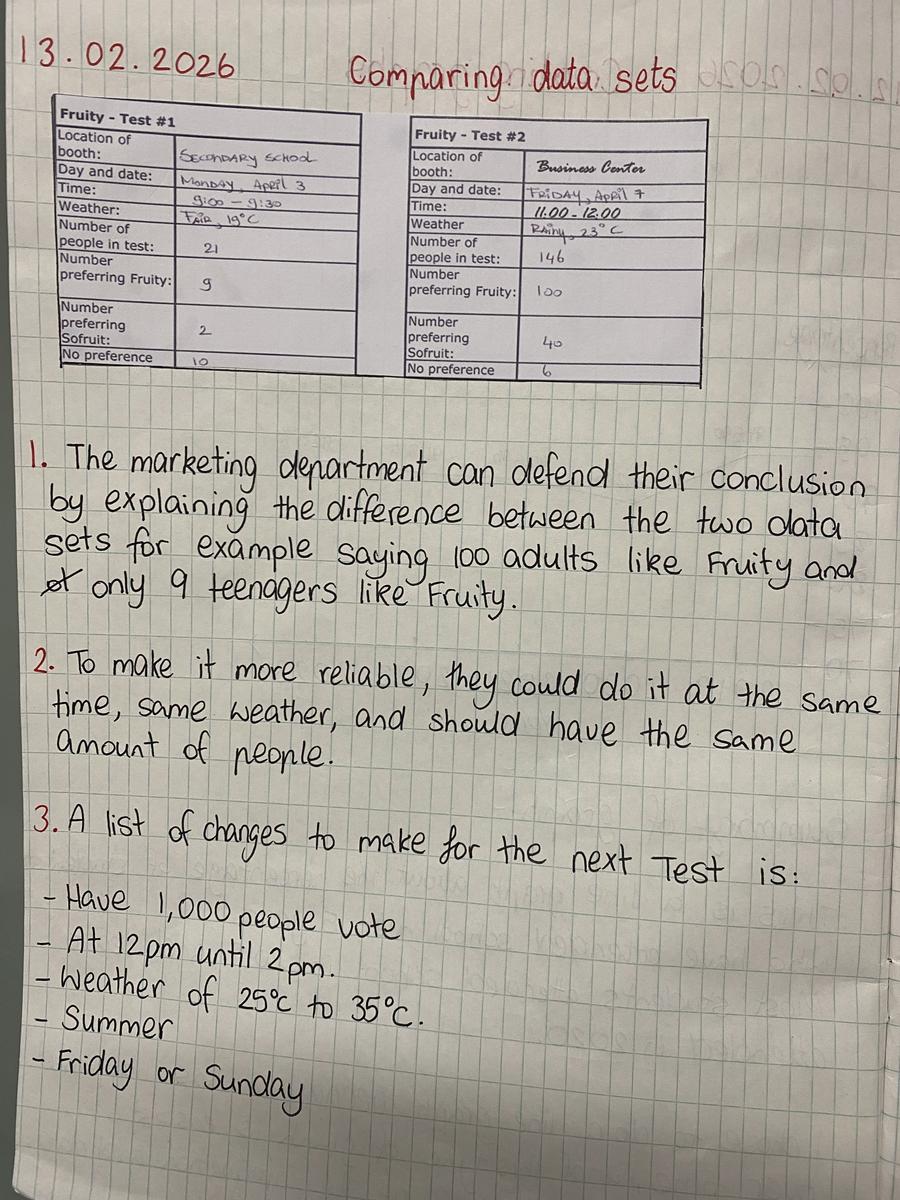 13.02.2026 Comparing data sets
Fruity - Test #1
Location of
booth: SECONDARY SCHOOL
Day and date: MONDAY, APRIL 3
Time: 9:00 - 9:30
Weather: FAIR, 19°C
Number of
people in test: 21
Number
preferring Fruity: 9
Number
preferring
Sofruit: 2
No preference 10
Fruity - Test #2
Location of
booth: Business Center
Day and date: FRIDAY, APRIL 7
Time: 11.00 - 12.00
Weather Rainy, 23°C
Number of
people in test: 146
Number
preferring Fruity: 100
Number
preferring
Sofruit: 40
No preference 6
1. The marketing department can defend their conclusion
by explaining the difference between the two data
sets for example saying 100 adults like Fruity and
only 9 teenagers like Fruity.
2. To make it more reliable, they could do it at the same
time, same weather, and should have the same
amount of people.
3. A list of changes to make for the next Test is:
- Have 1,000 people vote
- At 12pm until 2pm.
- Weather of 25°C to 35°C.
- Summer
- Friday or Sunday